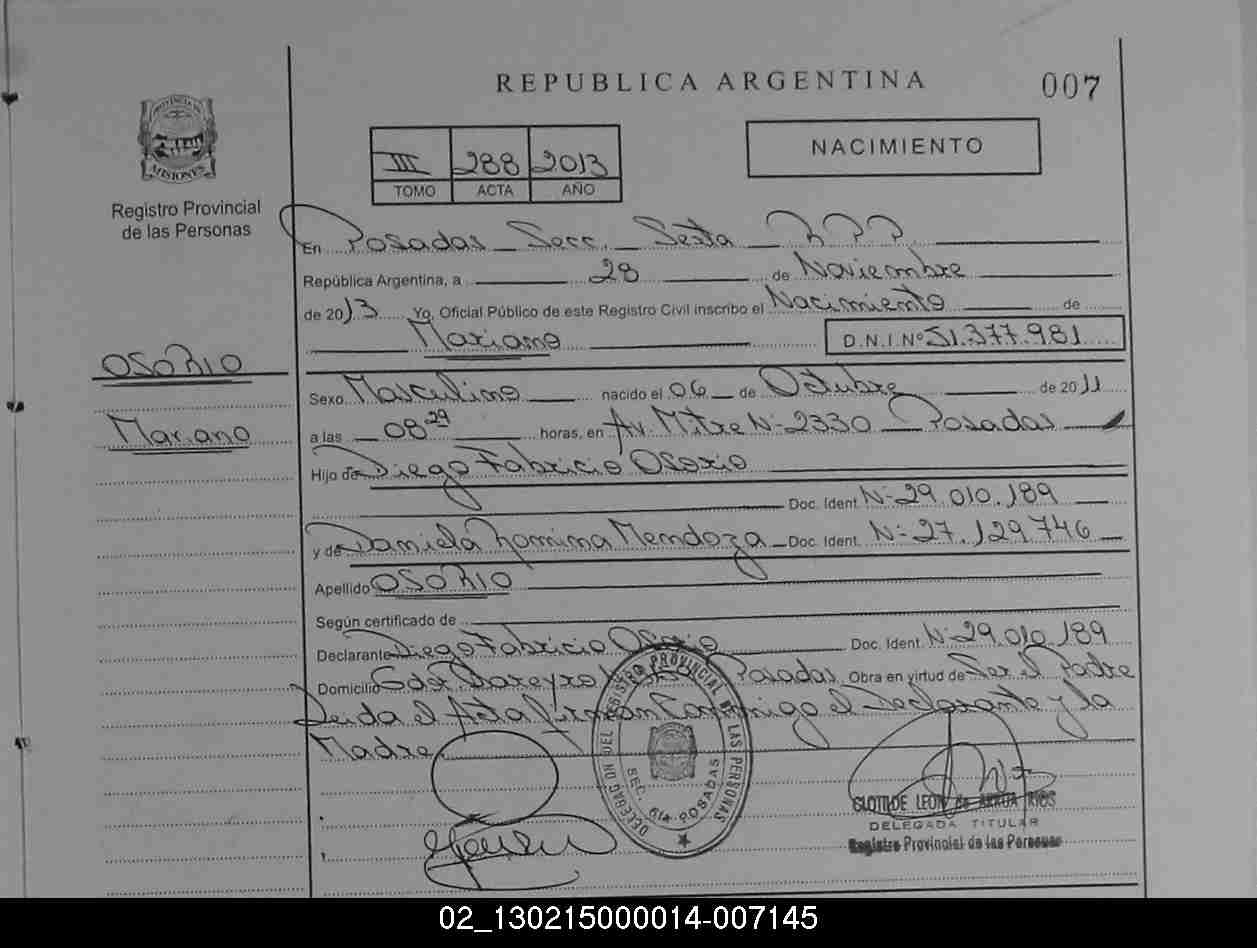 REPUBLICA ARGENTINA
007
PROVINCIA DE
MISIONES
Registro Provincial
de las Personas
III 288 2013
TOMO ACTA AÑO
NACIMIENTO
En Posadas Secc. Sexta R P P
República Argentina, a 28 de Noviembre
de 2013 Yo, Oficial Público de este Registro Civil inscribo el Nacimiento de
Mariano D.N.I.Nº 51.377.981
OSORIO
Mariano
Sexo Masculino nacido el 06 de Octubre de 2011
a las 08 29 horas, en Av. Mitre Nº 2330 Posadas
Hijo de Diego Fabricio Osorio
Doc. Ident. Nº 29.010.189
y de Daniela Romina Mendoza Doc. Ident. Nº 27.129.746
Apellido OSORIO
Según certificado de
Declarante Diego Fabricio Osorio Doc. Ident. Nº 29.010.189
Domicilio Gdor. Bareyro Posadas. Obra en virtud de Ser el Padre
Leida el Acta firman Conmigo el Declarante y la
Madre
DELEGACION DEL REGISTRO PROVINCIAL DE LAS PERSONAS
SEC. 6ta POSADAS
CLOTILDE LEON de ARRUA RIOS
DELEGADA TITULAR
Registro Provincial de las Personas
02_130215000014-007145